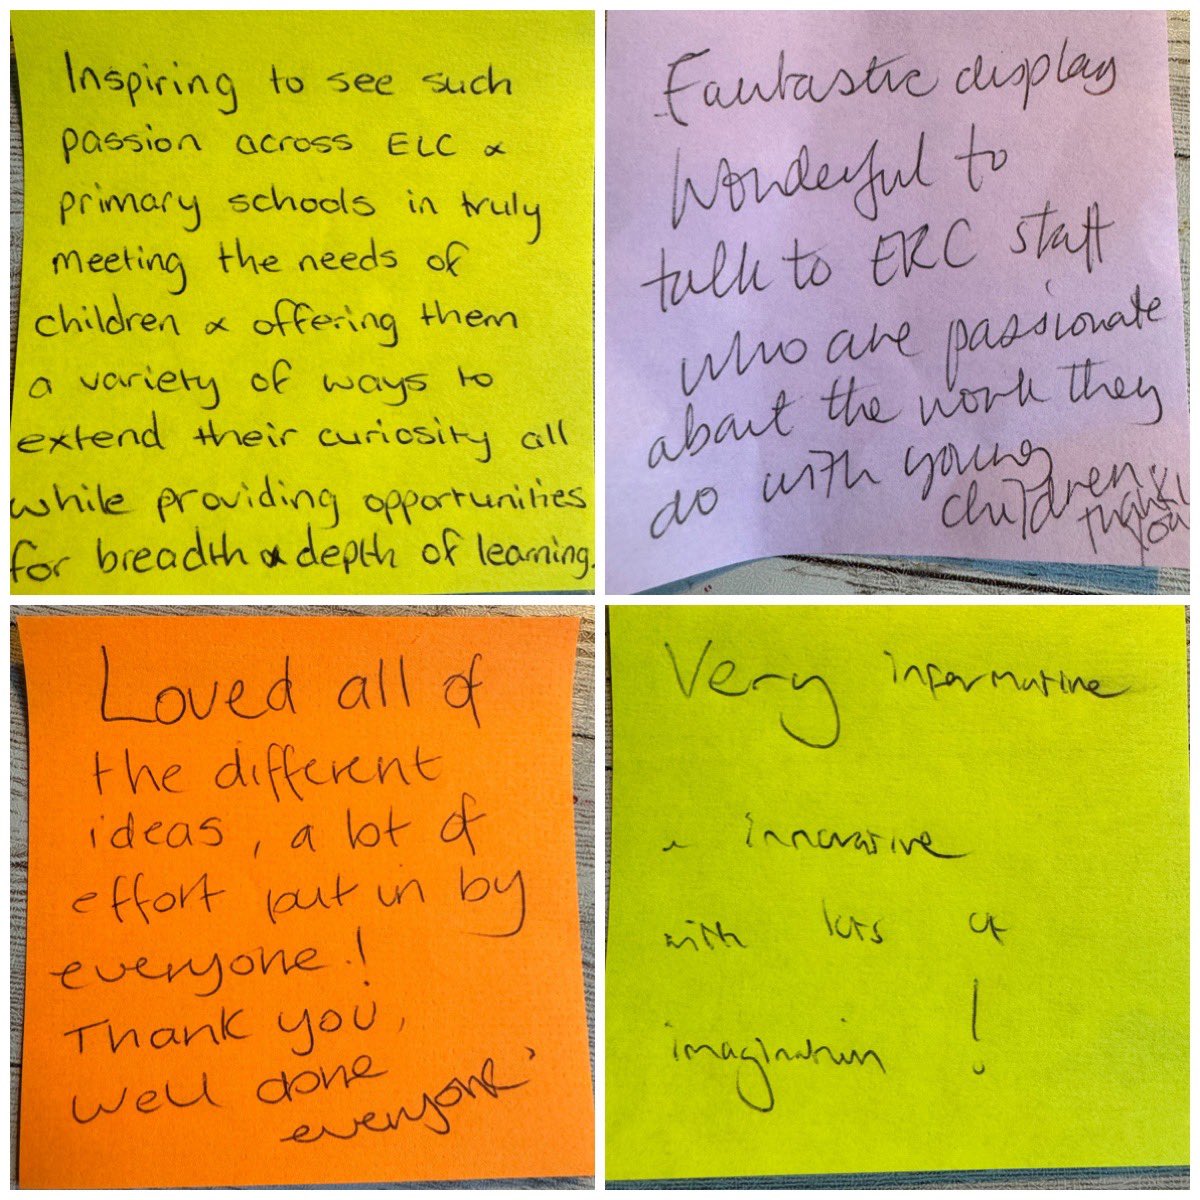 Inspiring to see such
passion across ELC &
primary schools in truly
meeting the needs of
children & offering them
a variety of ways to
extend their curiosity all
while providing opportunities
for breadth & depth of learning.
Fantastic display
Wonderful to
talk to ERC staff
who are passionate
about the work they
do with young
children
thank
you
Loved all of
the different
ideas, a lot of
effort put in by
everyone!
Thank you,
well done
everyone
Very informative
& innovative
with lots of
imagination !